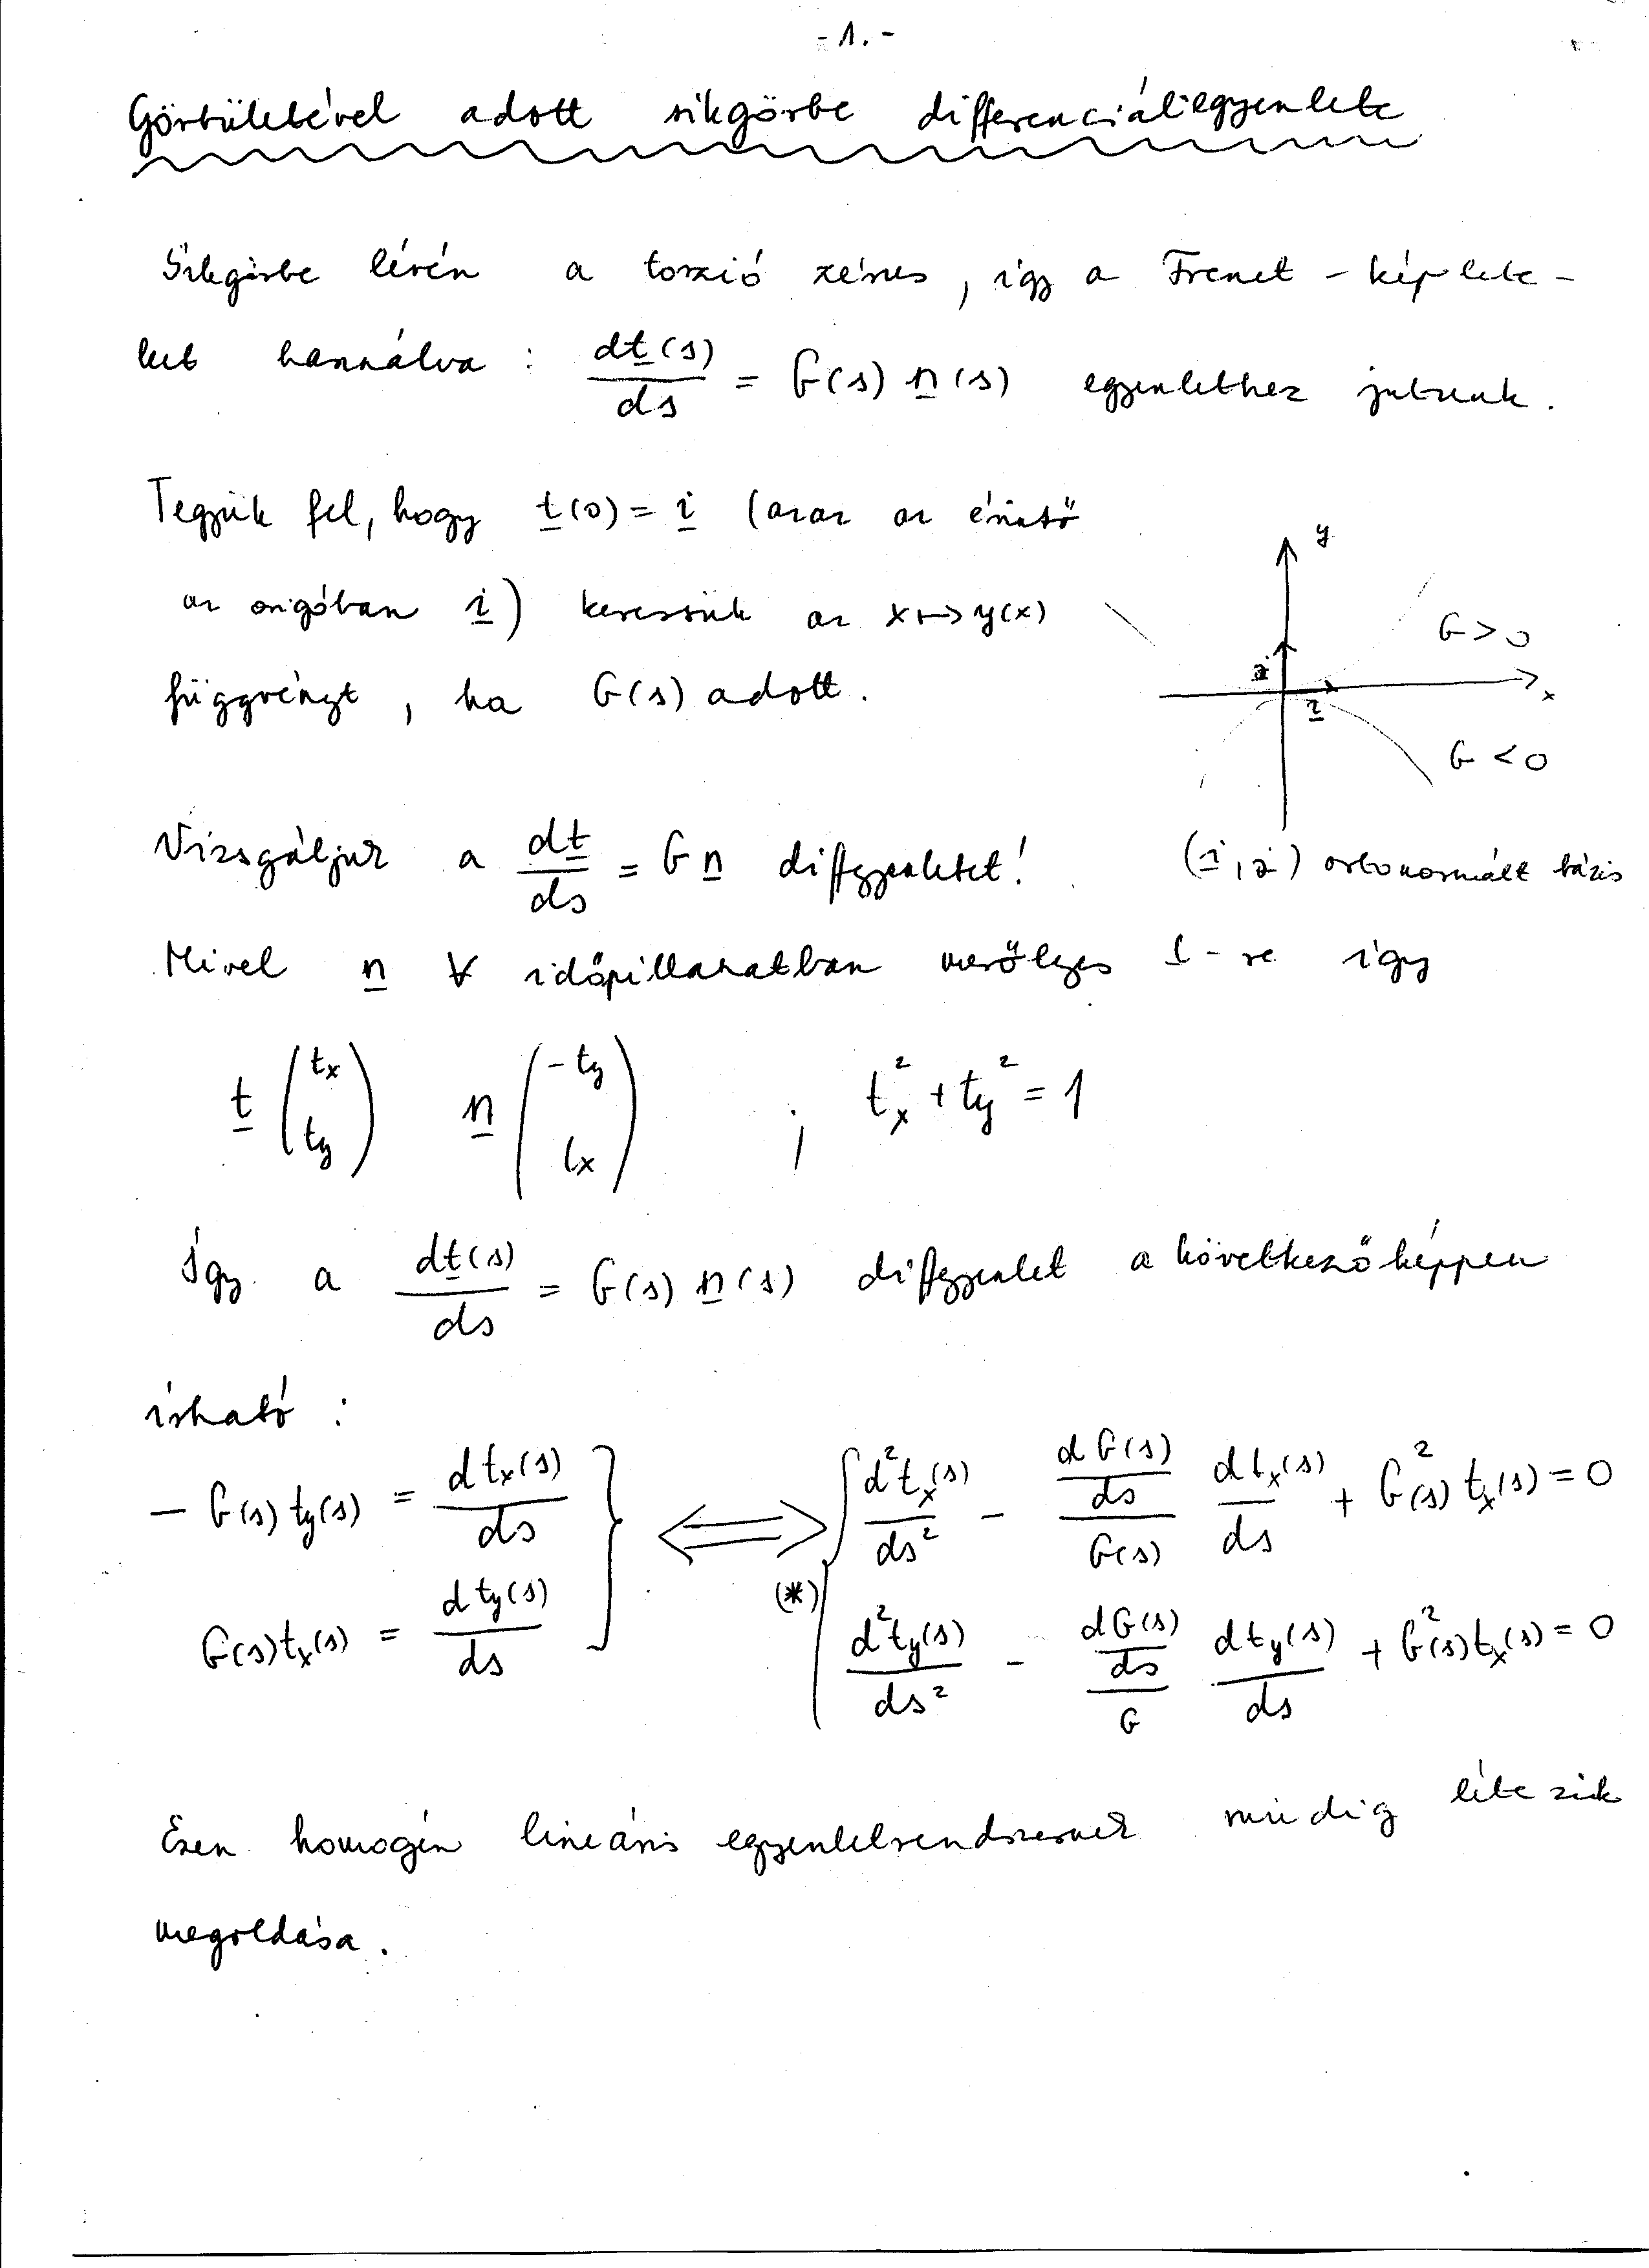 - 1. -
Görbületével adott síkgörbe differenciálegyenlete
Síkgörbe lévén a torzió zérus, így a Frenet - képlete -
ket használva : dt(s)/ds = G(s) n(s) egyenlethez jutunk.
Tegyük fel, hogy t(0) = i (azaz az érintő
az origóban i) keressük az x ↦ y(x)
függvényt, ha G(s) adott.
y
G > 0
j
i
x
G < 0
(i, j) ortonormált bázis
Vizsgáljuk a dt/ds = G n diffegyenletet!
Mivel n ∀ időpillanatban merőleges t-re így
t (tx ty) n (-ty tx) ; tx² + ty² = 1
Így a dt(s)/ds = G(s) n(s) diffegyenlet a következőképpen
írható :
- G(s) ty(s) = dtx(s)/ds
G(s) tx(s) = dty(s)/ds
} ⟺ (*) {
d²tx(s)/ds² - (dG(s)/ds)/G(s) dtx(s)/ds + G²(s) tx(s) = 0
d²ty(s)/ds² - (dG(s)/ds)/G dty(s)/ds + G²(s) tx(s) = 0
Ezen homogén lineáris egyenletrendszernek mindig létezik
megoldása.